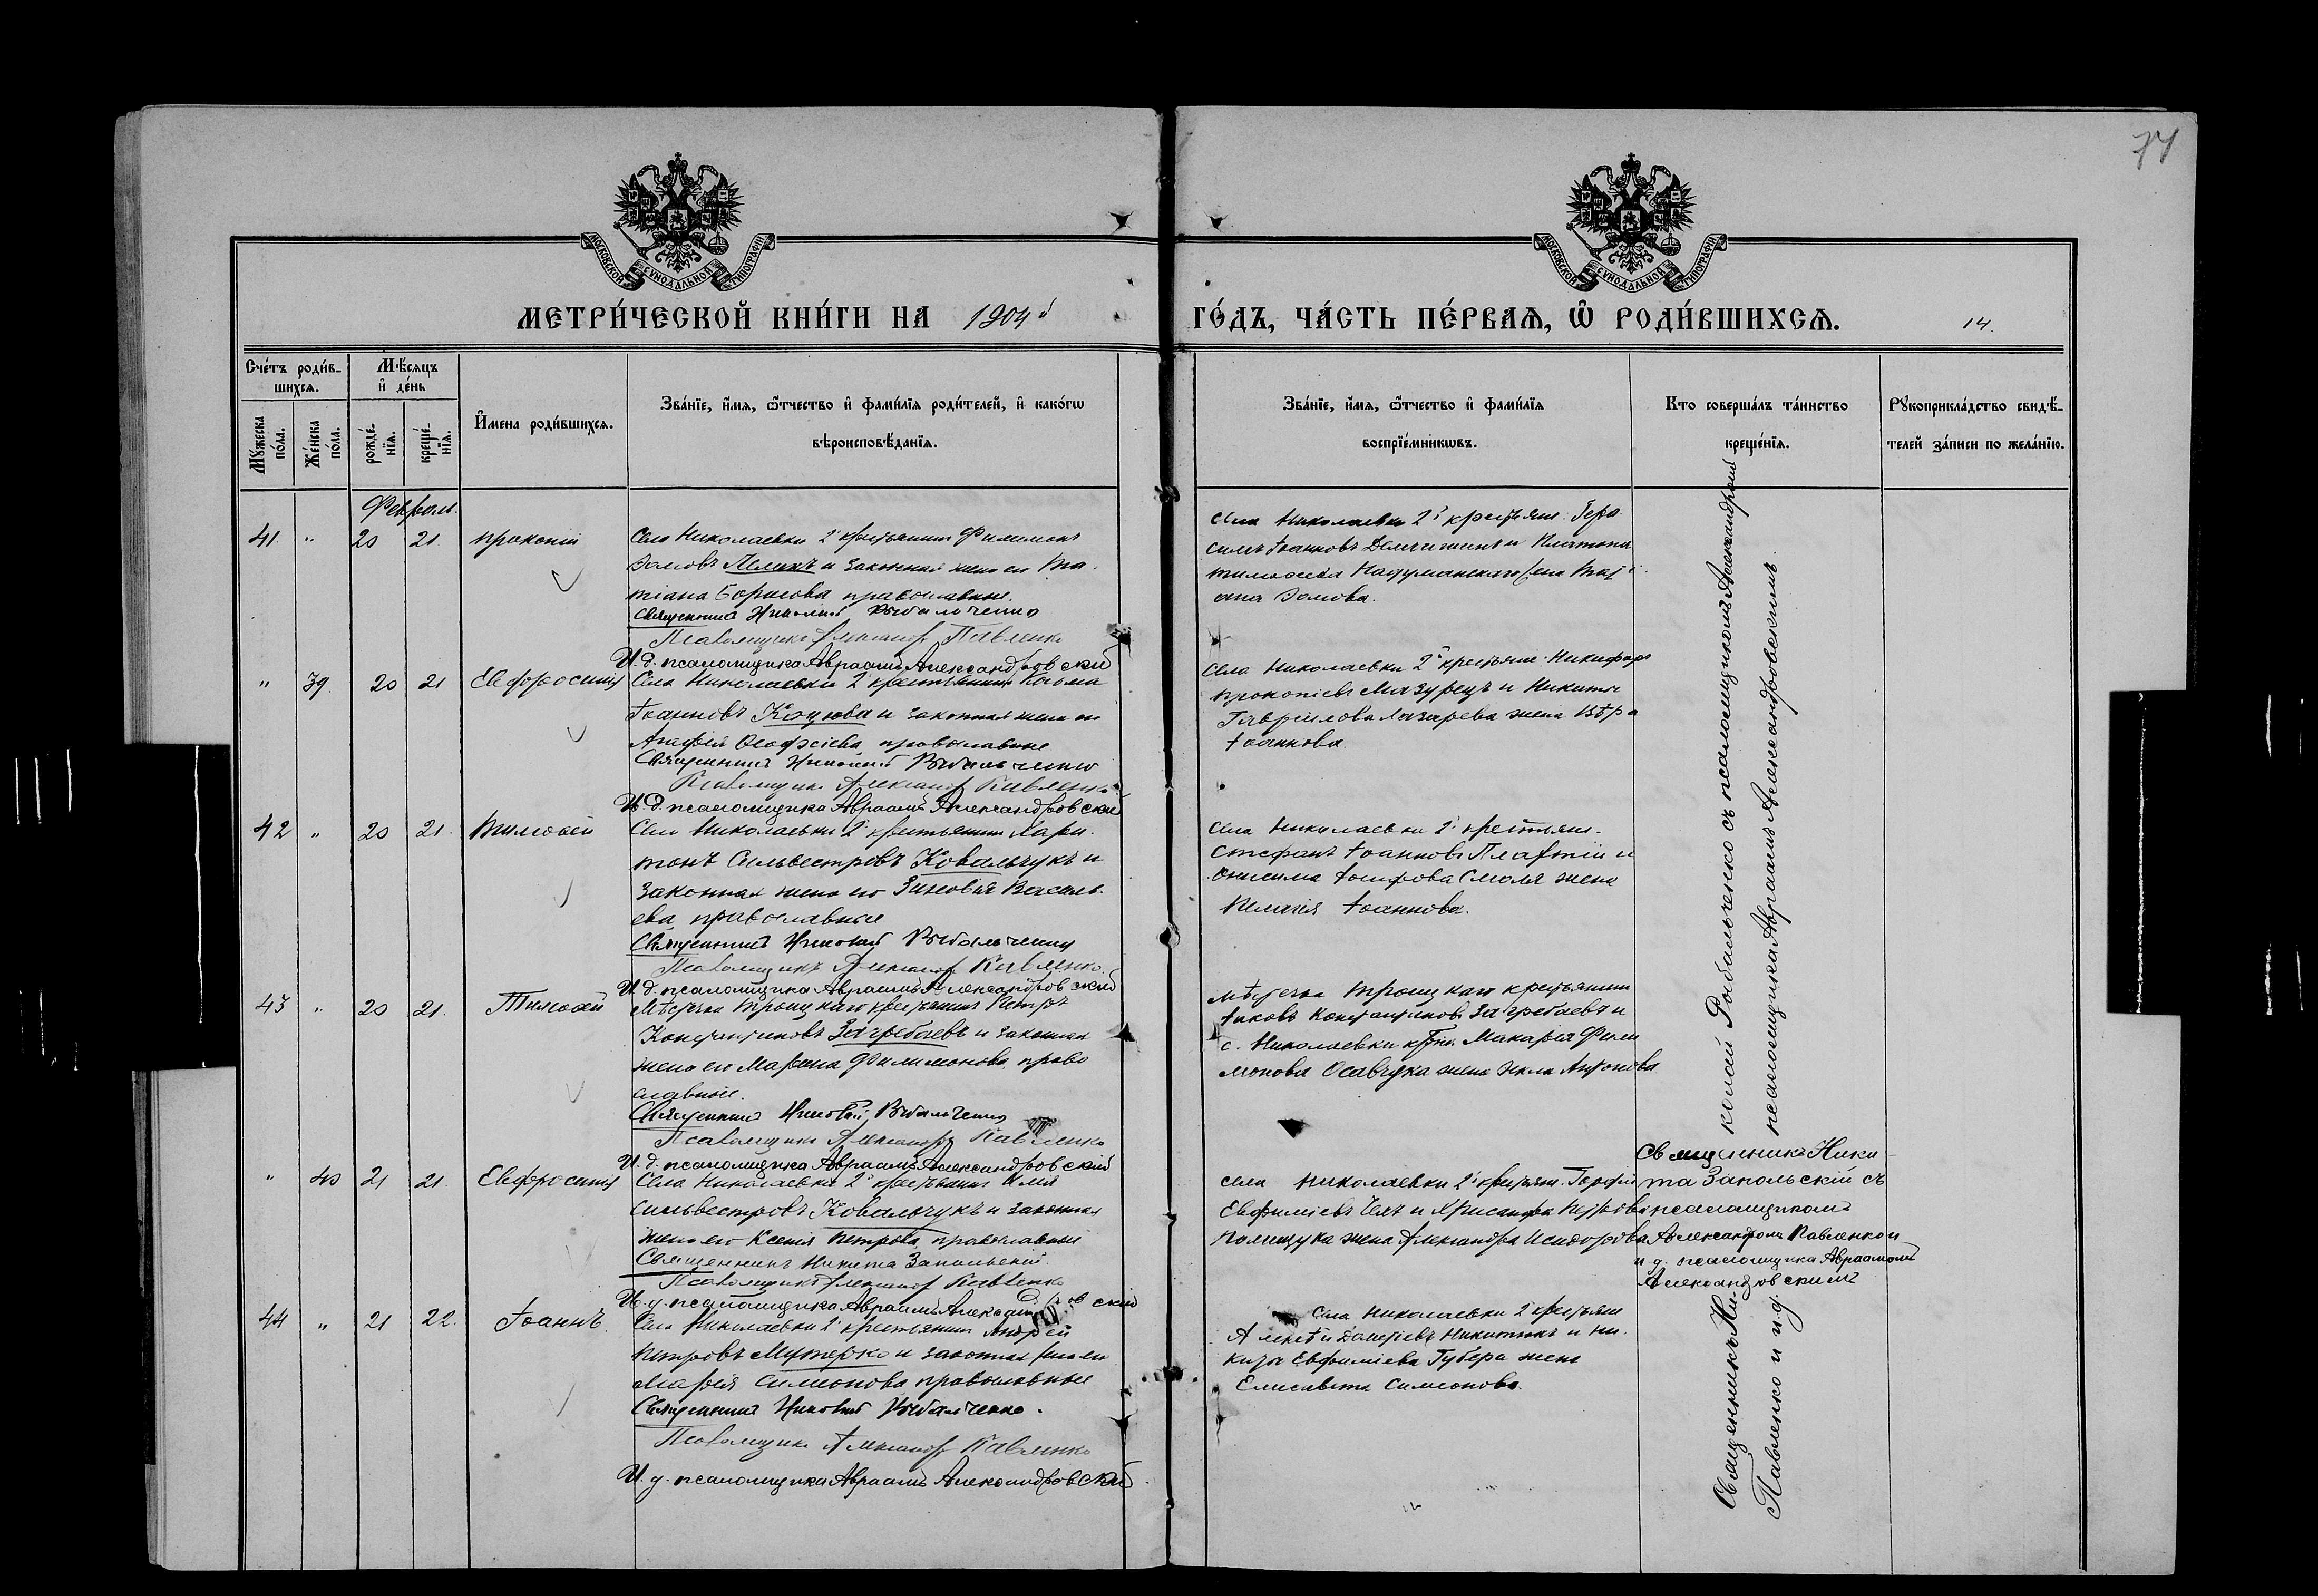 74
МОСКОВСКОЙ СУНОДАЛЬНОЙ ТИПОГРАФІИ
МОСКОВСКОЙ СУНОДАЛЬНОЙ ТИПОГРАФІИ
МЕТРИ́ЧЕСКОЙ КНИ́ГИ НА 1904й
ГО́ДЪ, ЧА́СТЬ ПЕ́РВАѦ, Ѡ҆ РОДИ́ВШИХСѦ.
14.
Сче́тъ роди́в-
шихсѧ.
Мѣ́сѧцъ
и҆ де́нь
Мꙋ́жеска
по́ла.
Же́нска
по́ла.
рожде́-
нїѧ.
креще́-
нїѧ.
И҆мена роди́вшихсѧ.
Зва́нїе, и҆́мѧ, ѻ҆́тчество и҆ фами́лїѧ роди́телей, и҆ како́гѡ
вѣроисповѣ́данїѧ.
Зва́нїе, и҆́мѧ, ѻ҆́тчество и҆ фами́лїѧ
воспрїе́мникѡвъ.
Кто соверша́лъ та́инство
креще́нїѧ.
Рꙋкоприкла́дство свидѣ́-
телей за́писи по жела́нїю.
Февраль.
41. " 20 21. Прокопій
Села Николаевки 2й крестьянинъ Филимонъ
и законная жена его Та-
тіана Борисова православные.
Священникъ Николай Рыбальченко
Псаломщикъ Александр Павленко
И.д. псаломщика Авраамъ Александровскій
Села Николаевки 2й крестьяне. Гера
симъ Іоанновъ и Платона
жена
" 39. 20 21 Евфросинія
Села Николаевки 2й крестьянинъ Косма
Іоанновъ Козуюва и законная жена его
Агафія православные
Священникъ Николай Рыбальченко
Псаломщикъ Александр Павленко
И.д. псаломщика Авраамъ Александровскій
Села Николаевки 2й крестьяне. Никифоръ
Прокопіевъ Мазурецъ и Никиты
Гавриилова Лазарева жена Вѣра
Іоаннова.
42 " 20 21. Тимофей
Села Николаевки 2й крестьянинъ Хари-
тонъ Сильвестровъ Ковальчукъ и
законная жена его Зиновія Василь-
ева, православные
Священникъ Николай Рыбальченко
Псаломщикъ Александр Павленко.
И.д. псаломщика Авраамъ Александровскій
Села Николаевки 2й крестьяне.
Стефанъ Іоанновъ и
Онисима Іосифова жена
Пелагія Іоаннова.
43 " 20 21. Тимофей
Мѣстечка Троицкаго крестьянинъ Петръ
Константиновъ Загребаевъ и законная
жена его Марина Филимонова, право
славные.
Священникъ Николай Рыбальченко
Псаломщикъ Александр Павленко
И.д. псаломщика Авраамъ Александровскій
Мѣстечка Троицкаго крестьянинъ
Іаковъ Константиновъ Загребаевъ и
с. Николаевки Макарія Фили
монова Осавчука жена Антонова
" 40 21 21. Евфросинія
Села Николаевки 2й крестьянинъ Илія
Сильвестровъ Ковальчукъ и законная
жена его Ксенія Петрова, православные
Священникъ Никита Запольскій.
Псаломщикъ Александр Павленко
И.д. псаломщика Авраамъ Александровскій
Села Николаевки 2й крестьяне.
Евфиміевъ и Хрисанфа Петрова
Полищука жена Александра Исидорова
Священникъ Ники-
та Запольскій съ
псаломщикомъ
Александромъ Павленко и
и д. псаломщика Авраамомъ
Александровскимъ
44 " 21 22. Іоаннъ
Села Николаевки 2й крестьянинъ Андрей
Петровъ Мутерко и законная жена его
Марія Симеонова православные
Священникъ Николай Рыбальченко.
Псаломщикъ Александр Павленко
И.д. псаломщика Авраамъ Александровскій
Села Николаевки 2й крестьяне
Никитюкъ и Ни-
киты Евфиміева Губера жена
Елисавета Симеонова.
Священникъ Ни-
колай Рыбальченко съ псаломщикомъ Александромъ
Павленко и и.д. псаломщика Авраамъ Александровскимъ.